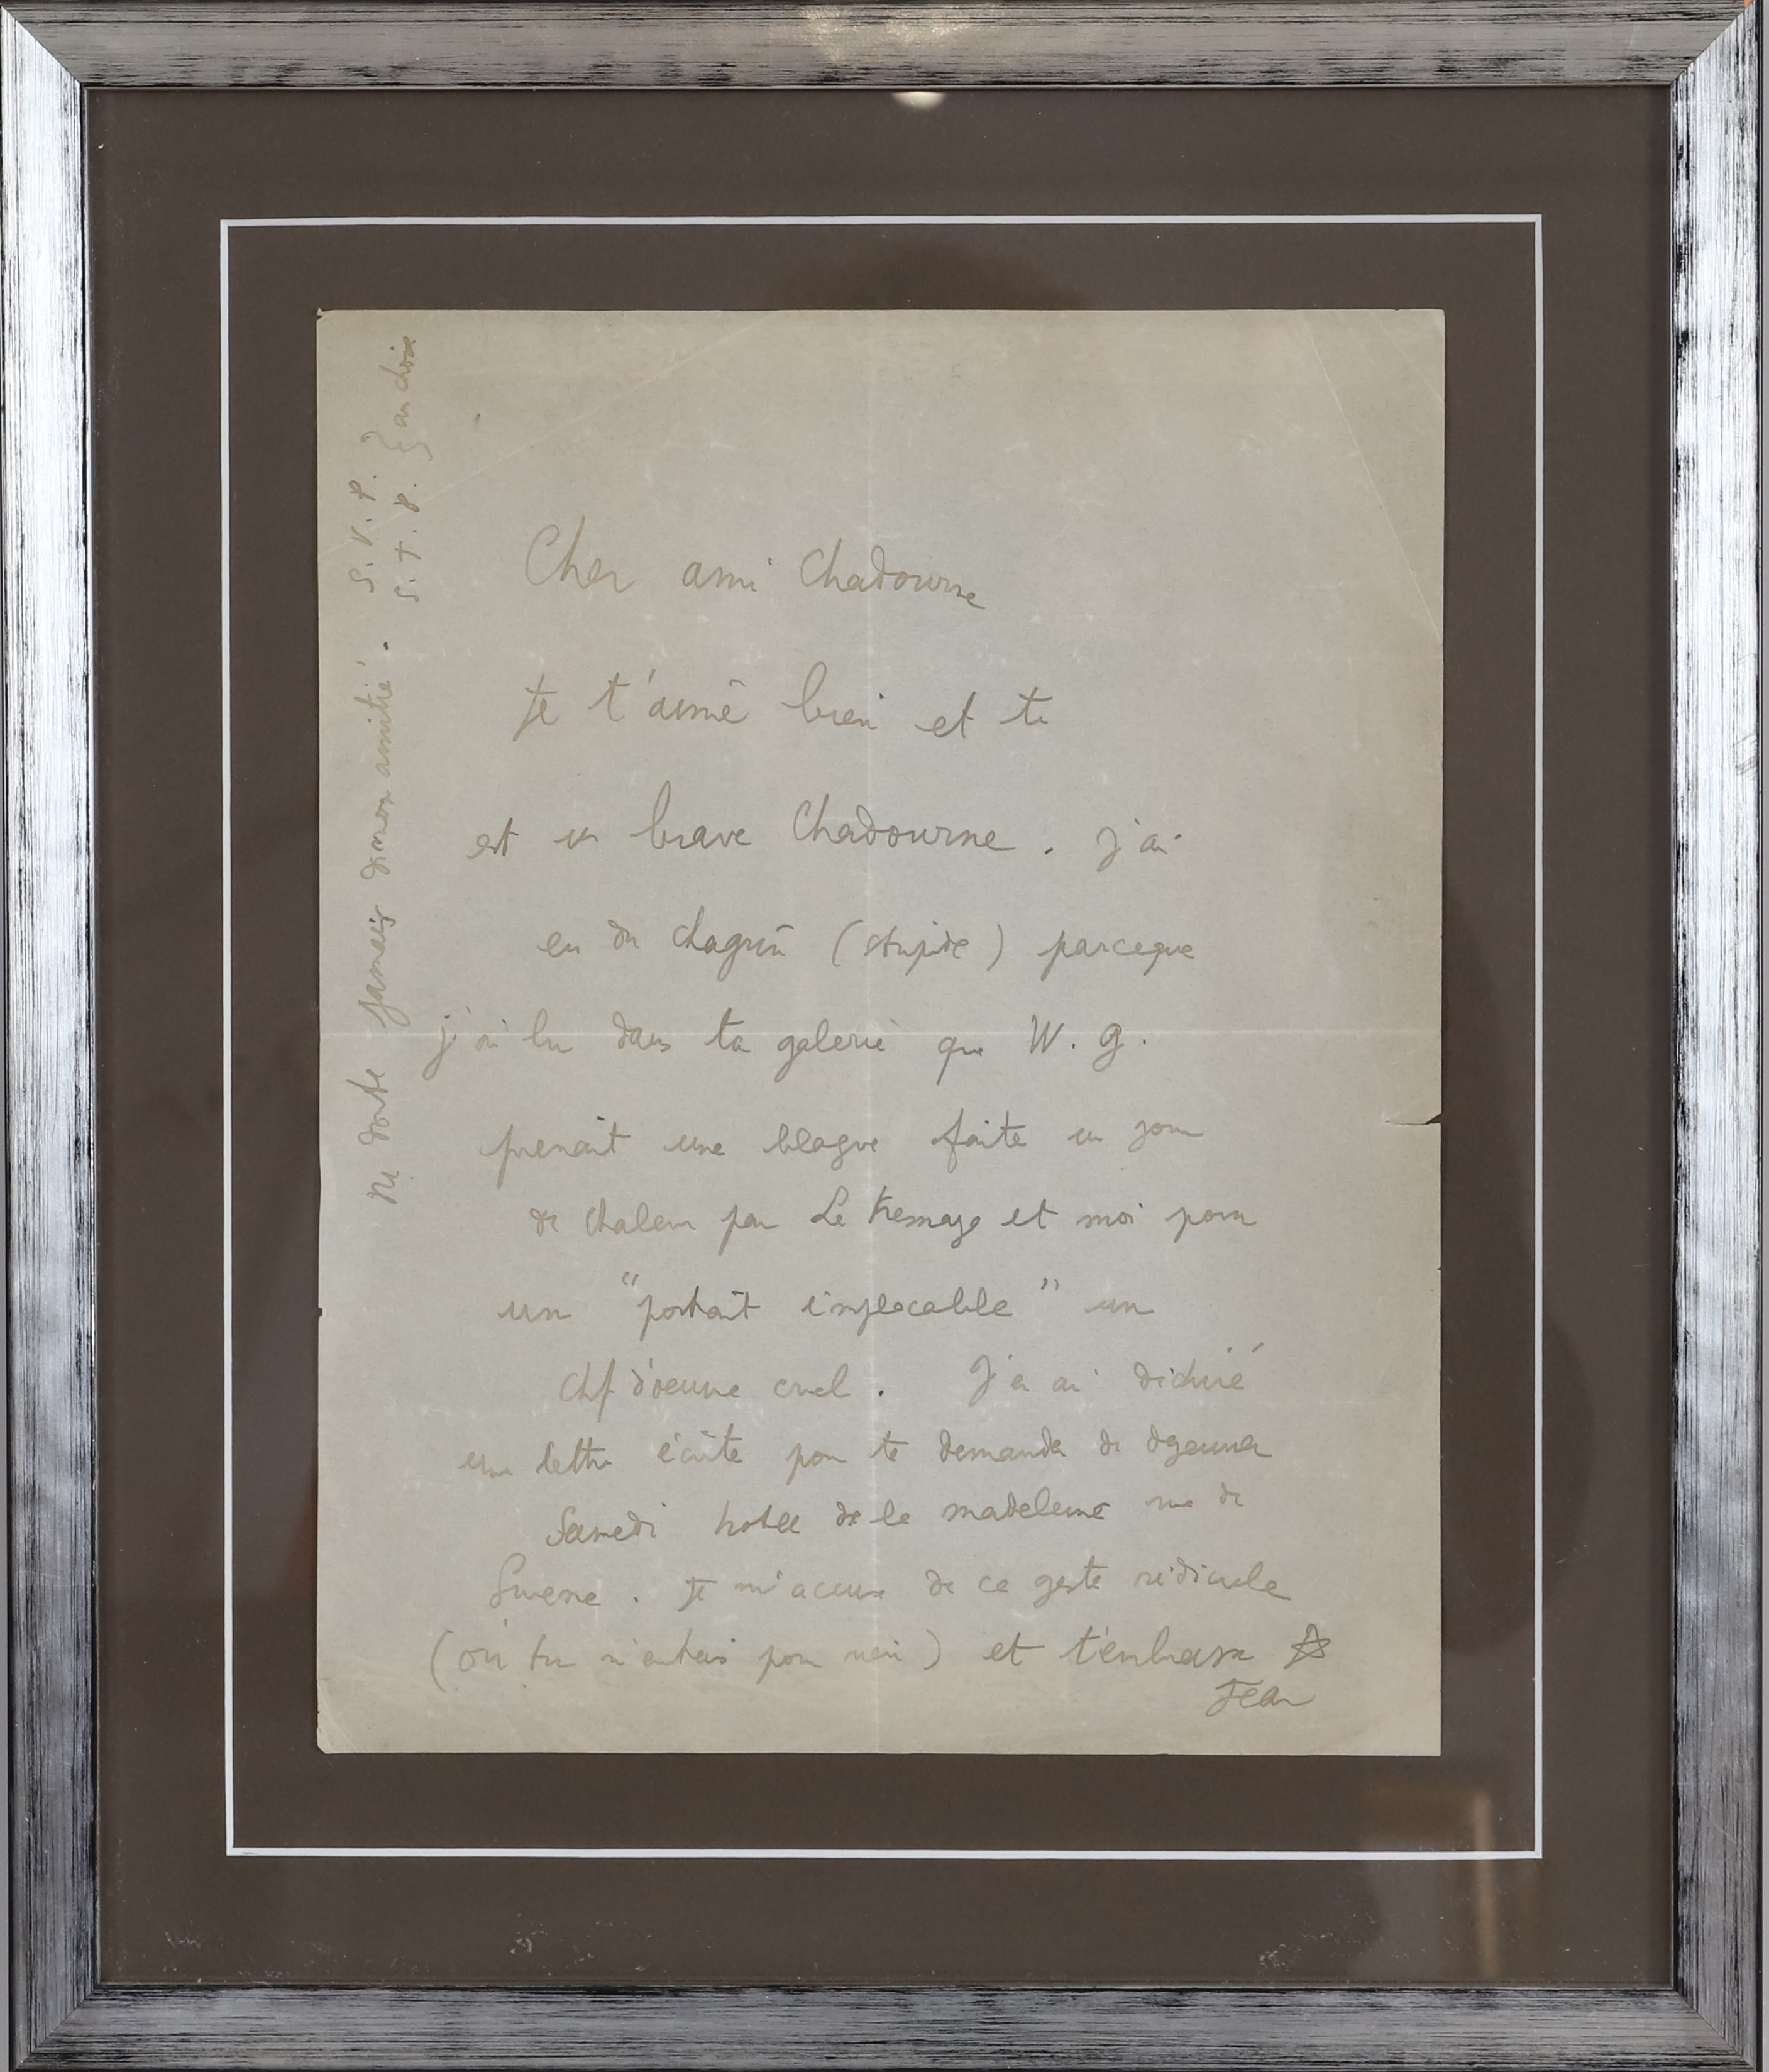 Cher ami Chadourne
Je t'aime bien et tu
est un brave Chadourne. J'ai
eu du chagrin (stupide) parceque
j'ai lu dans ta galerie que W. G.
prenait une blague faite un jour
de chaleur par et moi pour
un "portrait implacable" un
chef d'oeuvre cruel. J'en ai déchiré
une lettre écrite pour te demander de dejeuner
Samedi hotel de la madeleine rue de
Surene. Je m'accuse de ce geste ridicule
(où tu n'entrais pour rien) et t'embrasse
Jean
Ne doute jamais de mon amitié. S.V.P.
S.T.P. } au choix